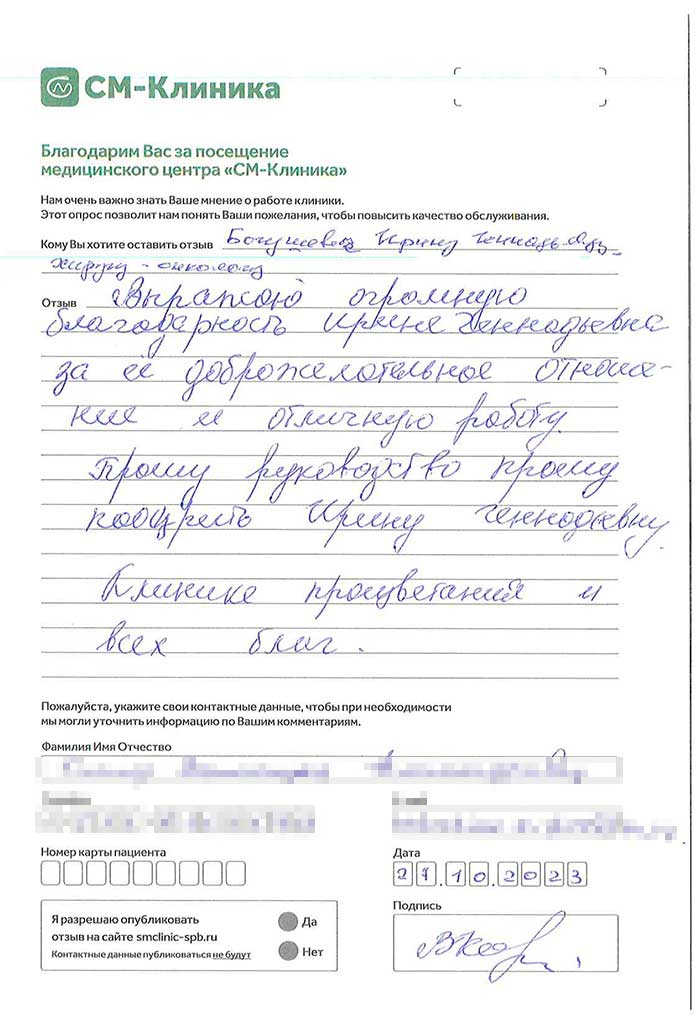 СМ-Клиника
Благодарим Вас за посещение
медицинского центра «СМ-Клиника»
Нам очень важно знать Ваше мнение о работе клиники.
Этот опрос позволит нам понять Ваши пожелания, чтобы повысить качество обслуживания.
Кому Вы хотите оставить отзыв Ирину
хирургу - онкологу
Отзыв Выражаю огромную
благодарность Ирине Геннадьевна
за её доброжелательное отноше-
ние и отличную работу.
Прошу руководство прошу
поощрить Ирину Геннадьевну.
Клинике процветания и
всех благ.
Пожалуйста, укажите свои контактные данные, чтобы при необходимости
мы могли уточнить информацию по Вашим комментариям.
Фамилия Имя Отчество
Номер карты пациента
Дата
27.10.2023
Подпись
Я разрешаю опубликовать
отзыв на сайте smclinic-spb.ru
Контактные данные публиковаться не будут
Да
Нет